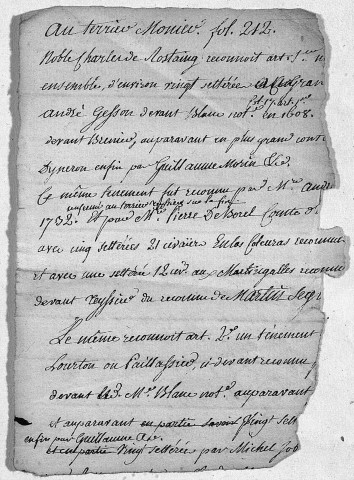 au terrier Monier. fol. 212.
Noble Charles de Rostaing reconnoit art. 1er
ensemble, d'environ vingt settérée
fol. 17. art. 1er
andré Gesson devant Blanc not.re en 1608.
devant Brenier, auparavant en plus grand cont
Dyneron enfin par Guillaume Morin &c.
Ce même tenement fut reconnu par Mre. andr
au terrier sur la fin
1752. Et par Mre. Pierre De Borel Comte d
avec cinq settérées 21 civaière En las Coeuras reconnue
et avec une settérée 12 civ. au Martrigalles reconnu
devant du reconnu de Martin Segr
Le même reconnoit art. 2e. un tenement
Lourton ou Paillassier, ci devant reconnu
devant led. Me. Blanc not.e auparavant
et auparavant en partie savoir Vingt sett
enfin par Guillaume &c.
et en partie Vingt settérée par Michel